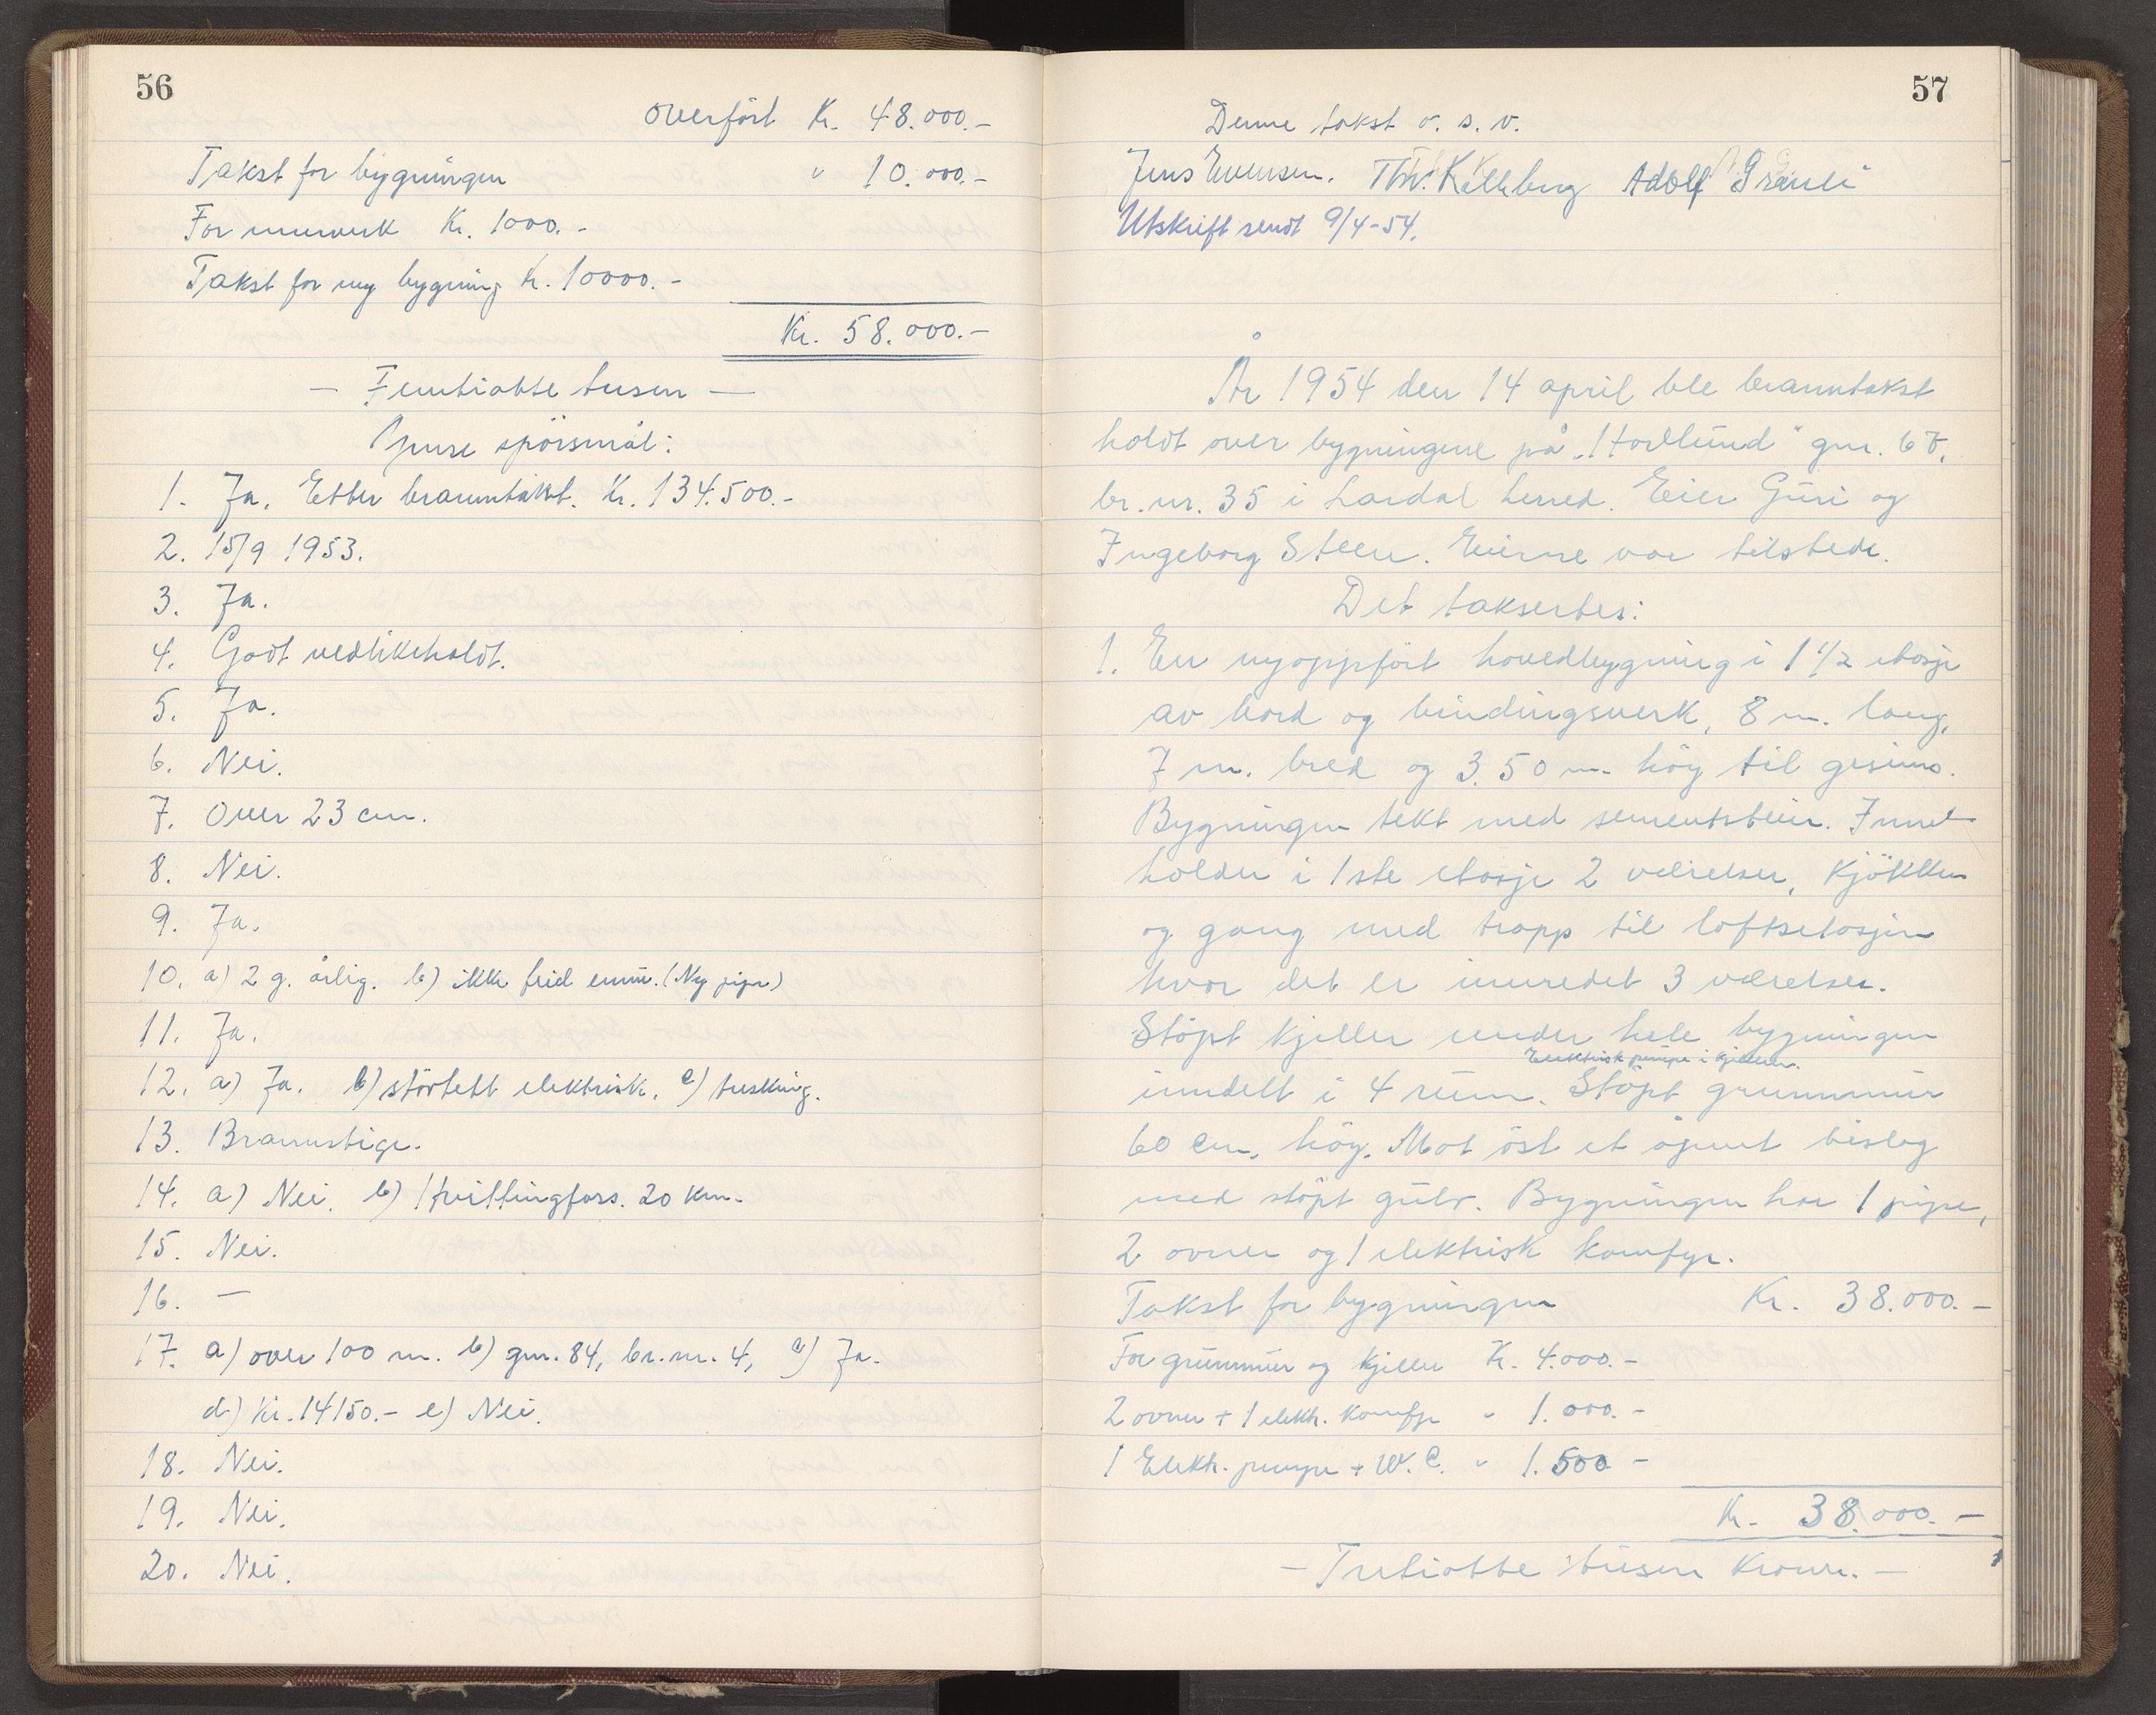 56
overført Kr. 48.000.-
Takst for bygningen " 10.000.-
For murverk Kr. 1000.-
Takst for ny bygning Kr. 10000.-
Kr. 58.000.-
— Femtiåtte tusen —
Ymse spörsmål:
1. Ja. Etter branntakst. Kr. 134.500.-
2. 15/9 1953.
3. Ja.
4. Godt vedlikeholdt.
5. Ja.
6. Nei.
7. Over 23 cm.
8. Nei.
9. Ja.
10. a) 2 g. årlig. b) ikke feid ennu. (Ny pipe)
11. Ja.
12. a) Ja. b) störtett elektrisk. c) tresking.
13. Brannstige.
14. a) Nei. b) Hvittingfoss. 20 km.
15. Nei.
16. —
17. a) over 100 m. b) gnr. 84, br.nr. 4, c) Ja.
d) Kr. 14150.- e) Nei.
18. Nei.
19. Nei.
20. Nei.
57
Denne takst o. s. v.
Jens Evensen. Thv. Kellberg Adolf Granli
Utskrift sendt 9/4-54.
År 1954 den 14 april ble branntakst
holdt over bygningene på "Hordlund" gnr. 67,
br. nr. 35 i Lardal herred. Eier Guri og
Ingeborg Steen. Eierne var tilstede.
Det taksertes:
1. En nyoppfört hovedbygning i 1 1/2 etasje
av bord og bindingsverk, 8 m. lang,
7 m. bred og 3.50 m. höy til gesims.
Bygningen tekt med sementstein. Inne-
holder i 1ste etasje 2 værelser, kjökken
og gang med trapp til loftsetasjen
hvor det er innredet 3 værelser.
Stöpt kjeller under hele bygningen
Elektrisk pumpe i kjelleren.
inndelt i 4 rum. Stöpt grunnmur
60 cm. höy. Mot öst et åpent bislag
med stöpt gulv. Bygningen har 1 pipe,
2 ovner og 1 elektrisk komfyr.
Takst for bygningen Kr. 38.000.-
For grunnmur og kjeller Kr. 4.000.-
2 ovner + 1 elektr. komfyr " 1.000.-
1 Elektr. pumpe + W.C. " 1.500 -
Kr. 38.000.-
— Trettiåtte tusen kroner. —